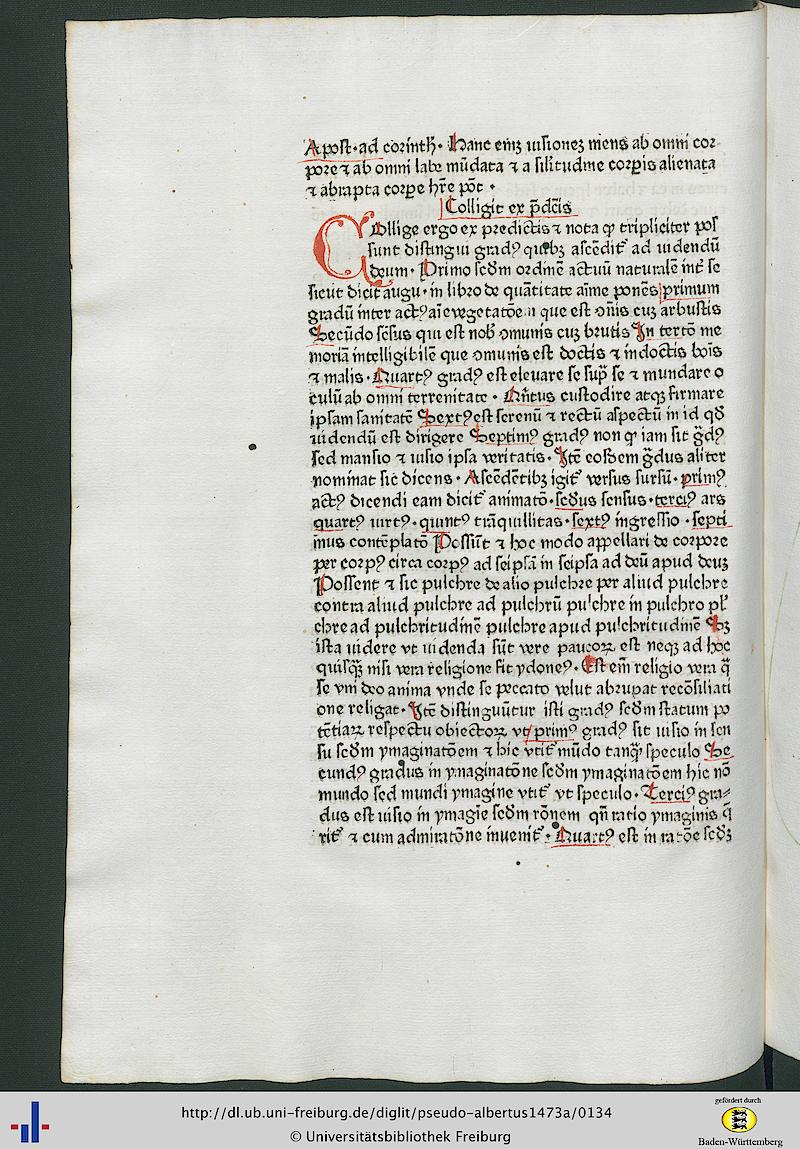 Apost·ad corinth̄· Hanc eniʒ uisioneʒ mens ab omni cor
pore ⁊ ab omni labe mūdata ⁊ a silitudine corpis alienata
⁊ abrapta corpe hr̄e pōt ·
Colligit ex p̄dcīs
Collige ergo ex predictis ⁊ nota qꝫ tripliciter pos
sunt distingui gradꝰ quibꝫ ascēdit᷑ ad uidendū
deum· Primo scdm ordinē actuū naturalē int᷑ se
sicut dicit augu· in libro de quātitate aīme ponēs primum
gradū inter actꝰ aīe vegetatōem que est ꝯmūis cuʒ arbustis
Secūdo sēsus qui est nob̄ ꝯmunis cuʒ brutis In tertō me
moriā intelligibilē que ꝯmunis est doctis ⁊ indoctis bōis
⁊ malis· Quartꝰ gradꝰ est eleuare se sup̄ se ⁊ mundare o
culū ab omni terrenitate · Qn̄tus custodire atqꝫ firmare
ipsam sanitatē Sextꝰ est serenū ⁊ rectū aspectū in id qd̄
uidendū est dirigere Septimꝰ gradꝰ non qꝫ iam sit g̊dꝰ
sed mansio ⁊ uisio ipsa veritatis· Itē eosdem g̊dus aliter
nominat sic dicens· Ascēdētibꝫ igit᷑ versus sursū· primꝰ
actꝰ dicendi eam dicit᷑ animatō· scdus sensus· terciꝰ ars
quartꝰ uirtꝰ· quintꝰ trāquillitas· sextꝰ ingressio · septi
mus contēplatō Possūt ⁊ hoc modo appellari de corpore
per corpꝰ circa corpꝰ ad seipsā in seipsa ad deū apud deuʒ
Possent ⁊ sic pulchre de alio pulchre per aliud pulchre
contra aliud pulchre ad pulchrū pulchre in pulchro pl᷑
chre ad pulchritudinē pulchre apud pulchritudinē Sꝫ
ista uidere vt uidenda sūt vere paucoꝝ est neqꝫ ad hoc
quisqꝫ nisi vera religione fit ydoneꝰ· Est em̄ religio vera q̄
se vni deo anima vnde se peccato velut abrupat recōsiliati
one religat· Itē distinguūtur isti gradꝰ scdm statum po
tētiaꝝ respectu obiectoꝝ vt primꝰ gradꝰ sit uisio in sen
su scdm ymaginatōem ⁊ hic vtit᷑ mūdo tanqꝫ speculo Se
cundꝰ gradus in ymaginatōne scdm ymaginatōem hic nō
mundo sed mundi ymagine vtit᷑ vt speculo· Terciꝰ gra⸗
dus est uisio in ymagīe scdm rōnem qn̄ ratio ymaginis q̄
rit᷑ ⁊ cum admiratōne inuenit᷑· Quartꝰ est in ratōe scdꝫ
http://dl.ub.uni-freiburg.de/diglit/pseudo-albertus1473a/0134
© Universitätsbibliothek Freiburg
gefördert durch
Baden-Württemberg